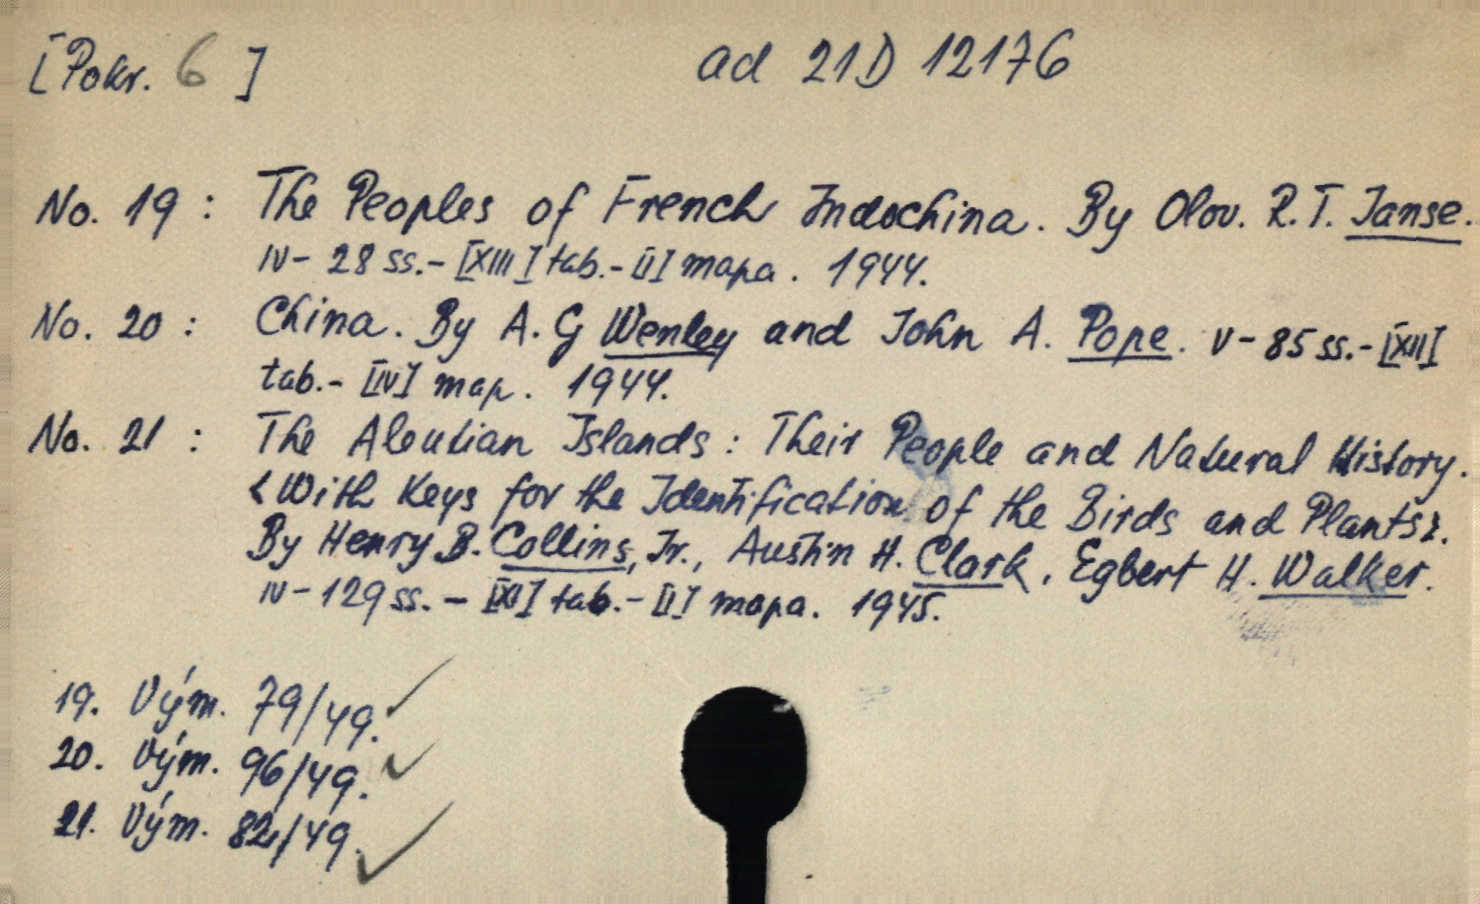 [Pokr. 6] ad 21D 12176
No. 19 : The Peoples of French Indochina. By Olov. R. T. Janse.
IV - 28 ss. - [XIII] tab. - [I] mapa. 1944.
No. 20 : China. By A. G Wenley and John A. Pope. V - 85 ss. - [XII]
tab. - [IV] map. 1944.
No. 21 : The Aleutian Islands : Their People and Natural History.
<With Keys for the Identification of the Birds and Plants>.
By Henry B. Collins, Jr., Austin H. Clark, Egbert H. Walker.
IV - 129 ss. - [XI] tab. - [I] mapa. 1945.
19. Vým. 79/49.
20. Vým. 96/49.
21. Vým. 82/49.